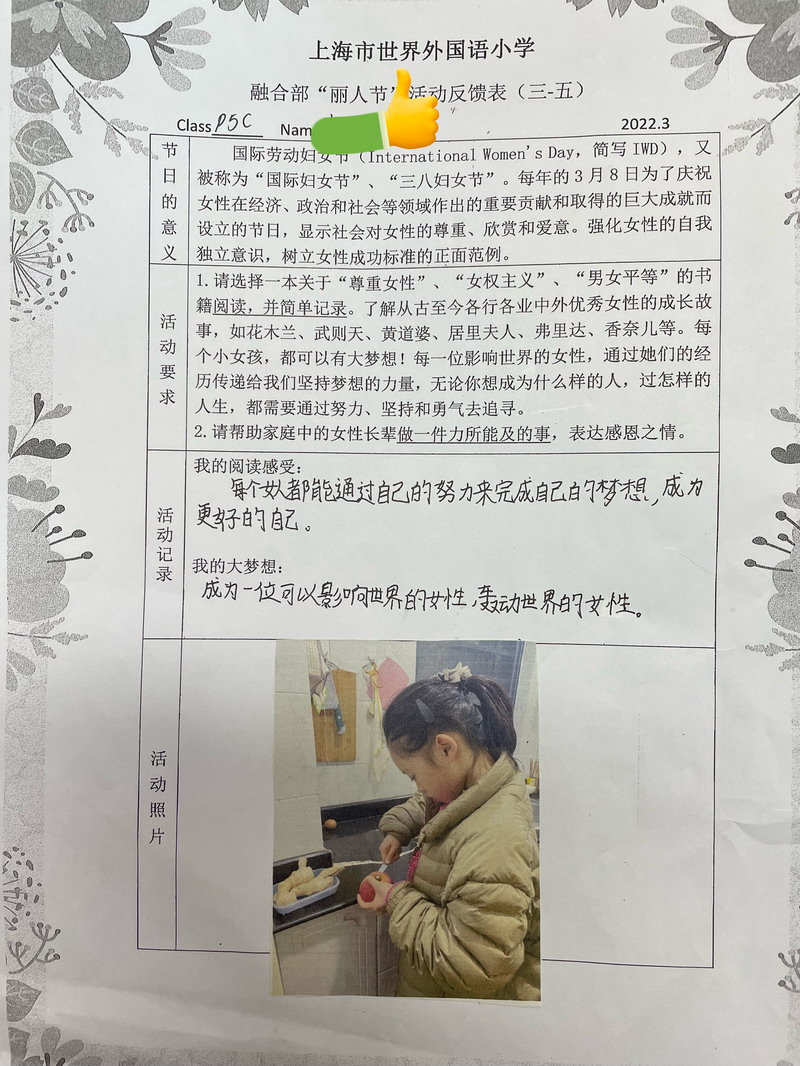 上海市世界外国语小学
融合部“丽人节”活动反馈表（三-五）
Class P5C Nam 2022.3
节日的意义
国际劳动妇女节（International Women's Day，简写 IWD），又
被称为“国际妇女节”、“三八妇女节”。每年的 3 月 8 日为了庆祝
女性在经济、政治和社会等领域作出的重要贡献和取得的巨大成就而
设立的节日，显示社会对女性的尊重、欣赏和爱意。强化女性的自我
独立意识，树立女性成功标准的正面范例。
活动要求
1.请选择一本关于“尊重女性”、“女权主义”、“男女平等”的书
籍阅读，并简单记录。了解从古至今各行各业中外优秀女性的成长故
事，如花木兰、武则天、黄道婆、居里夫人、弗里达、香奈儿等。每
个小女孩，都可以有大梦想！每一位影响世界的女性，通过她们的经
历传递给我们坚持梦想的力量，无论你想成为什么样的人，过怎样的
人生，都需要通过努力、坚持和勇气去追寻。
2.请帮助家庭中的女性长辈做一件力所能及的事，表达感恩之情。
活动记录
我的阅读感受：
每个女人都能通过自己的努力来完成自己的梦想，成为
更好的自己。
我的大梦想：
成为一位可以影响世界的女性，轰动世界的女性。
活动照片